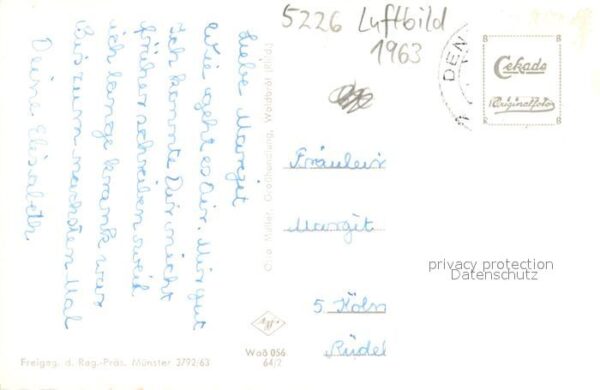 5226 Luftbild
1963
DEN
8 8
Cekade
Originalfoto
8 8
Liebe Margit
Wie geht es Dir. Mir gut
Ich konnte Dir nicht
früher schreiben weil
ich lange krank war
Bis zum nächsten Mal
Deine Elisabeth
Otto Müller, Großhandlung, Waldbröl (Rhld.)
Fräulein
Margit
5. Köln
Rüdel
privacy protection
Datenschutz
Agfa
Freigeg. d. Reg.-Präs. Münster 3792/63
Waß 056
64/2